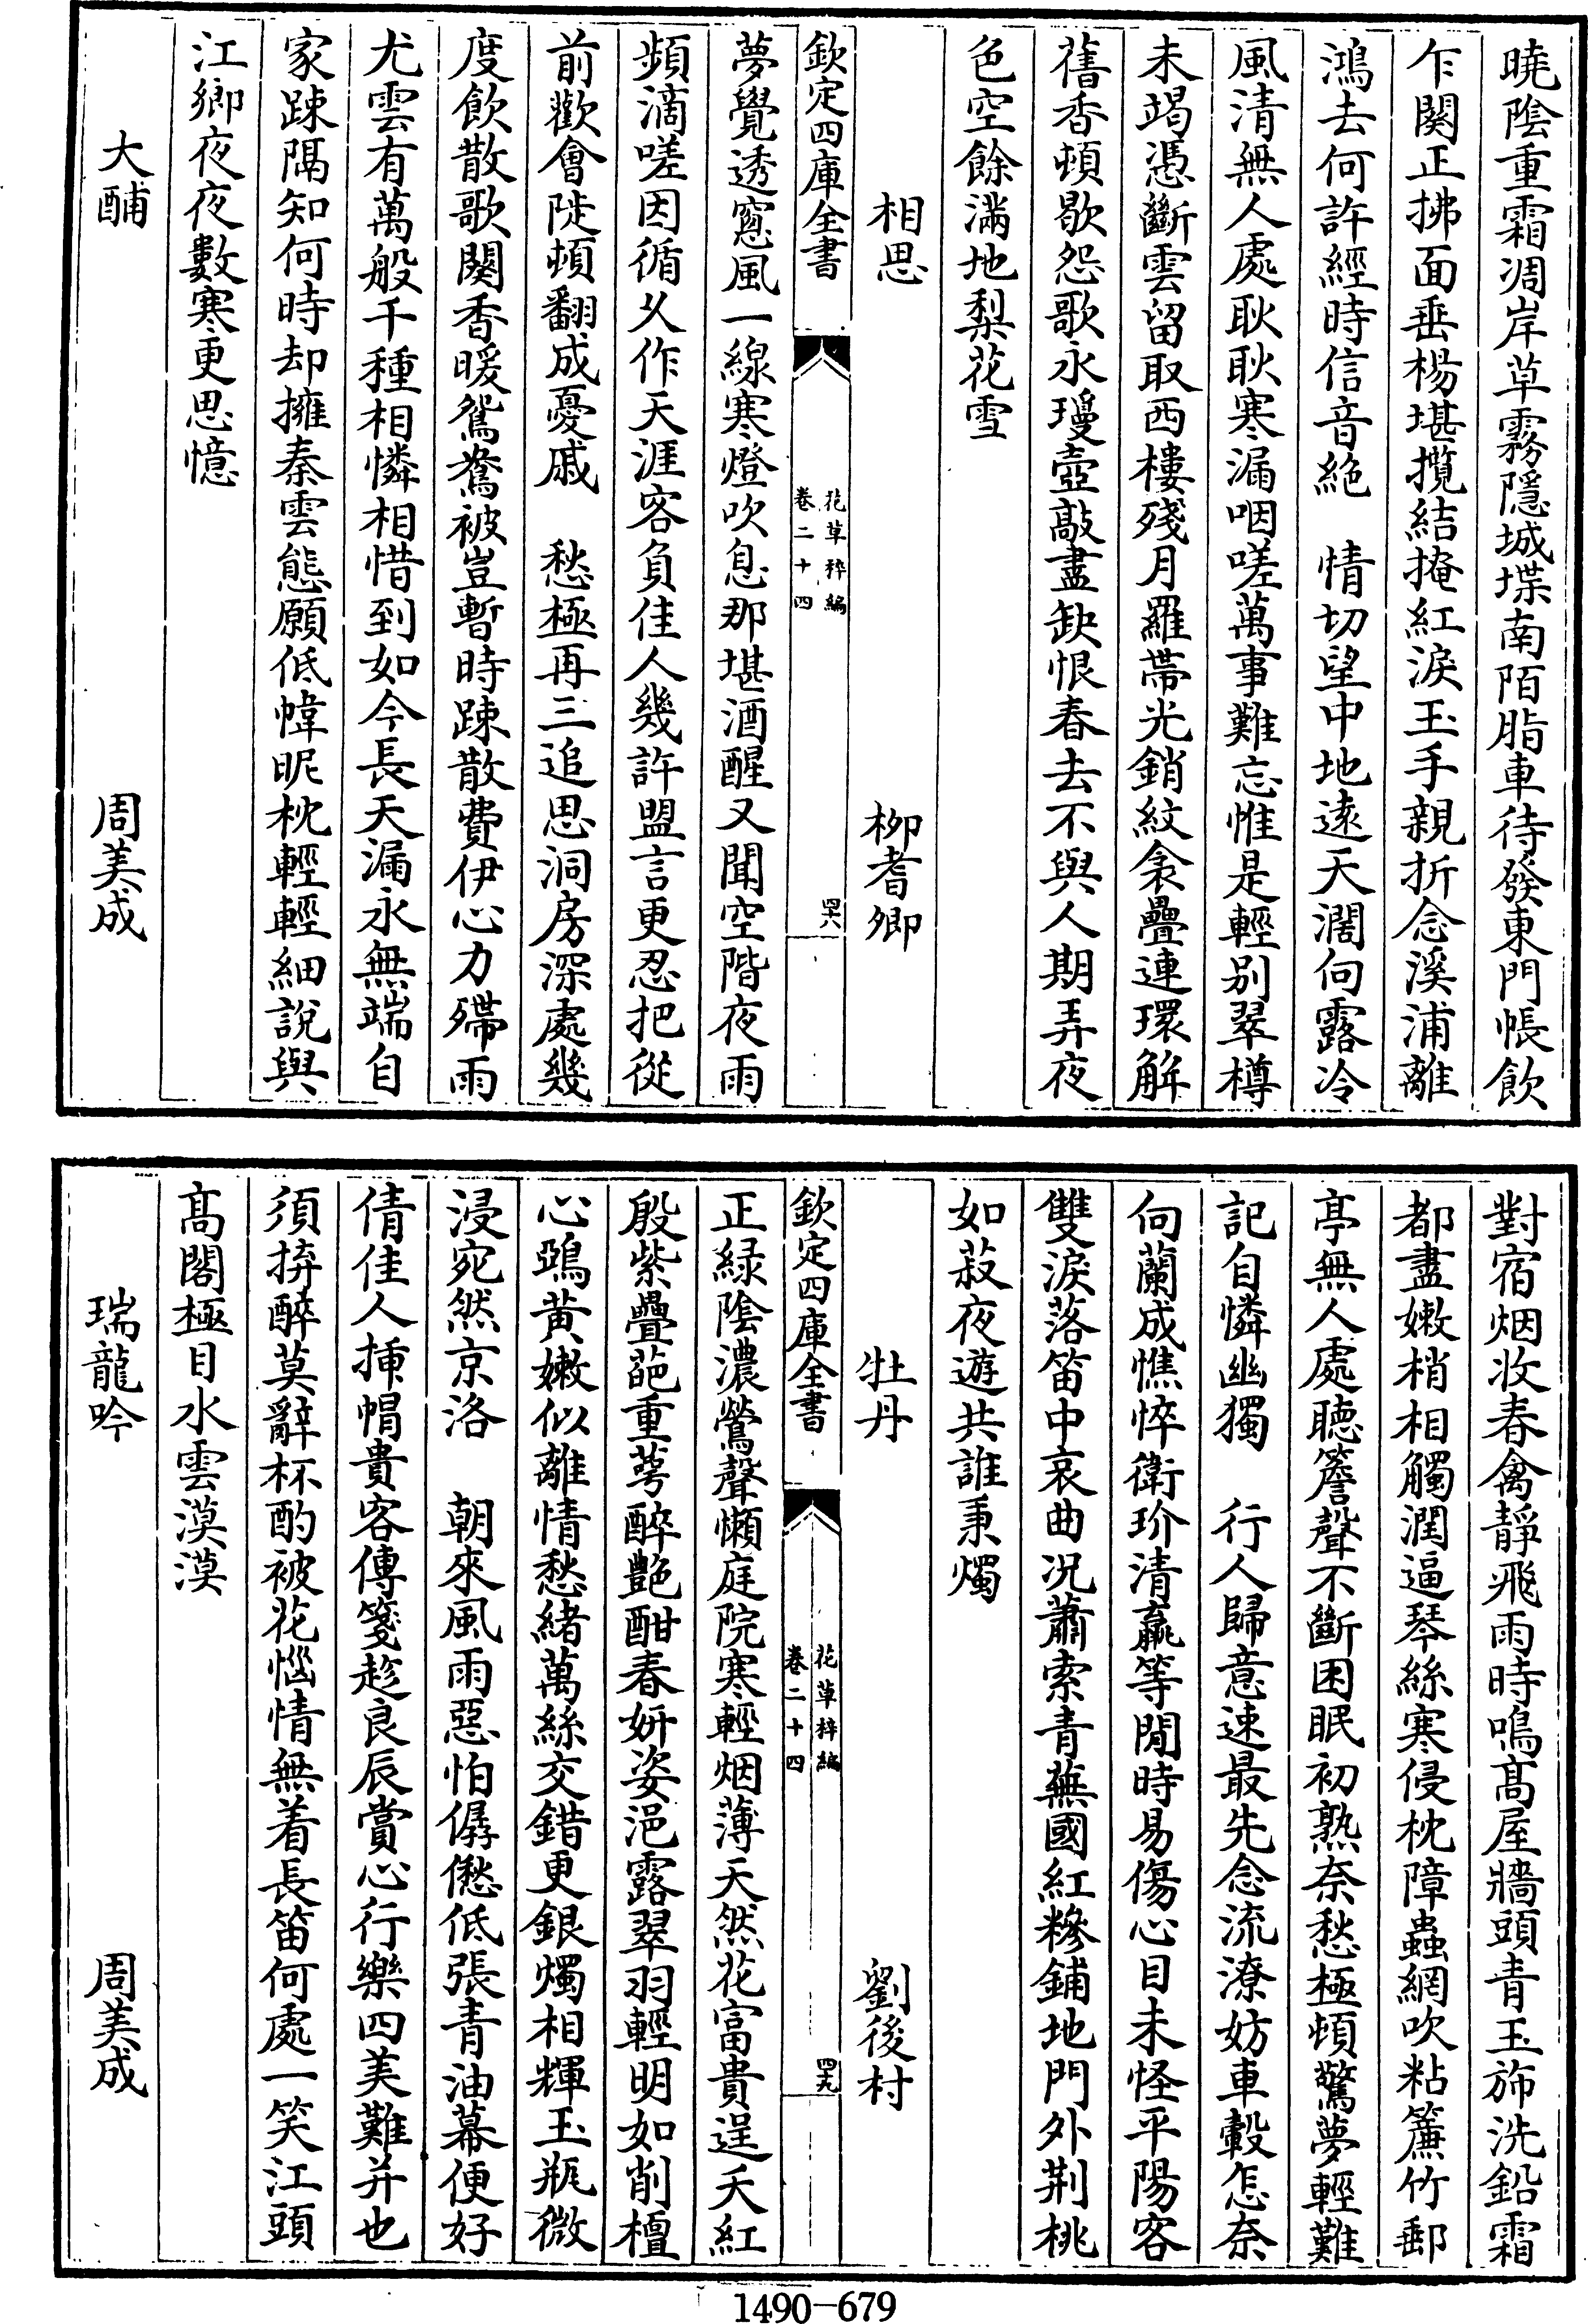 曉陰重霜凋岸草霧隱城堞南陌脂車待發東門帳飲
乍闋正拂面垂楊堪攬結掩紅淚玉手親折念溪浦離
鴻去何許經時信音絶　情切望中地遠天濶向露冷
風清無人處耿耿寒漏咽嗟萬事難忘惟是輕别翠樽
未竭憑斷雲留取西樓殘月羅帶光銷紋衾疊連環解
舊香頓歇怨歌永瓊壺敲盡缺恨春去不與人期弄夜
色空餘滿地梨花雪
相思　柳耆卿
欽定四庫全書
花草稡編
卷二十四
四六
夢覺透窻風一線寒燈吹息那堪酒醒又聞空階夜雨
頻滴嗟因循久作天涯客負佳人幾許盟言更忍把從
前歡會陡頓翻成憂戚　愁極再三追思洞房深處幾
度飲散歌闋香暖鴛鴦被豈暫時踈散費伊心力殢雨
尤雲有萬般千種相憐相惜到如今長天漏永無端自
家踈隔知何時却擁秦雲態願低幃昵枕輕輕細說與
江鄉夜夜數寒更思憶
大酺　周美成
對宿烟收春禽靜飛雨時鳴髙屋牆頭青玉斾洗鉛霜
都盡嫩梢相觸潤逼琴絲寒侵枕障蟲網吹粘簾竹郵
亭無人處聽簷聲不斷困眠初熟奈愁極頓驚夢輕難
記自憐幽獨　行人歸意速最先念流潦妨車轂怎奈
向蘭成憔悴衛玠清羸等閒時易傷心目未怪平陽客
雙淚落笛中哀曲况蕭索青蕪國紅糝鋪地門外荆桃
如菽夜遊共誰秉燭
牡丹　劉後村
欽定四庫全書
花草稡編
卷二十四
四九
正緑陰濃鶯聲懶庭院寒輕烟薄天然花富貴逞夭紅
殷紫疊葩重萼醉艶酣春妍姿浥露翠羽輕明如削檀
心鵶黄嫩似離情愁緒萬絲交錯更銀燭相輝玉瓶微
浸宛然京洛　朝來風雨惡怕僝僽低張青油幕便好
倩佳人插帽貴客傳箋趂良辰賞心行樂四美難并也
須拚醉莫辭杯酌被花惱情無着長笛何處一笑江頭
髙閣極目水雲漠漠
瑞龍吟　周美成
1490-679